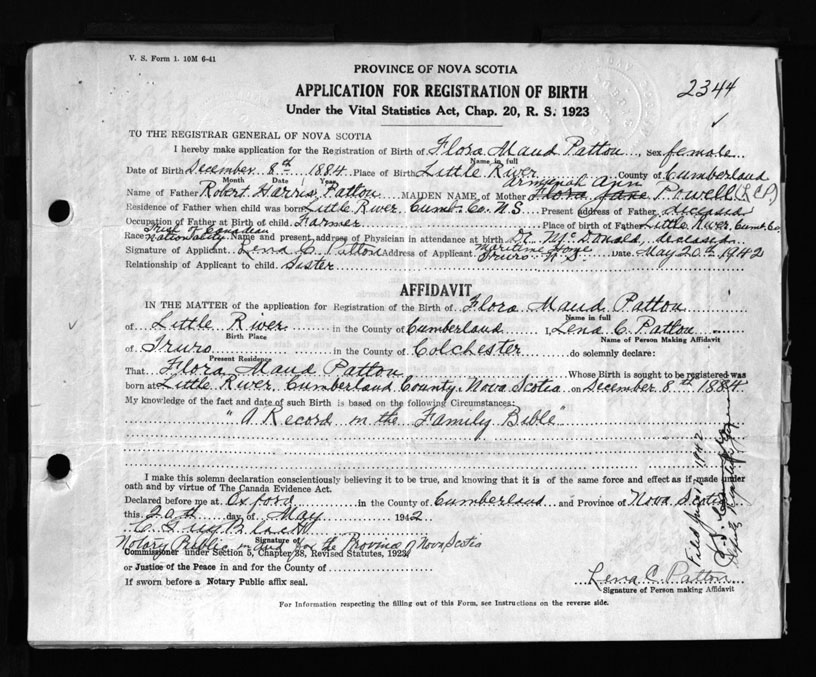 V. S. Form 1. 10M 6-41
PROVINCE OF NOVA SCOTIA
APPLICATION FOR REGISTRATION OF BIRTH
2344
Under the Vital Statistics Act, Chap. 20, R. S. 1923
TO THE REGISTRAR GENERAL OF NOVA SCOTIA
I hereby make application for the Registration of Birth of Flora Maud Patton, Sex female
Name in full
Date of Birth December 8th 1884 Place of Birth Little River County of Cumberland
Month Date Year
Armenah Ann
Name of Father Robert Harris Patton MAIDEN NAME of Mother Flora Jane Powell (LCP)
Residence of Father when child was born Little River, Cumb. Co. N.S. Present address of Father deceased
Occupation of Father at Birth of child Farmer Place of birth of Father Little River, Cumb. Co.
Canadian
Race Nationality Name and present address of Physician in attendance at birth Dr. McDonald, deceased
Signature of Applicant Lena C Patton Address of Applicant Maritime Home Truro N.S. Date May 20th 1942
Relationship of Applicant to child Sister
AFFIDAVIT
IN THE MATTER of the application for Registration of the Birth of Flora Maud Patton
Name in full
of Little River in the County of Cumberland I, Lena C. Patton
Birth Place Name of Person Making Affidavit
of Truro in the County of Colchester do solemnly declare:
Present Residence
That Flora Maud Patton Whose Birth is sought to be registered was
born at Little River, Cumberland County, Nova Scotia on December 8th 1884
My knowledge of the fact and date of such Birth is based on the following Circumstances:
"A Record in the Family Bible"
I make this solemn declaration conscientiously believing it to be true, and knowing that it is of the same force and effect as if made under
oath and by virtue of The Canada Evidence Act.
Declared before me at Oxford in the County of Cumberland and Province of Nova Scotia
this 20th day of May 1942
Signature of
Notary Public in and for the Province of Nova Scotia
Commissioner under Section 5, Chapter 38, Revised Statutes, 1923
or Justice of the Peace in and for the County of
If sworn before a Notary Public affix seal.
Lena C. Patton
Signature of Person making Affidavit
For Information respecting the filling out of this Form, see Instructions on the reverse side.
Filed June 1942